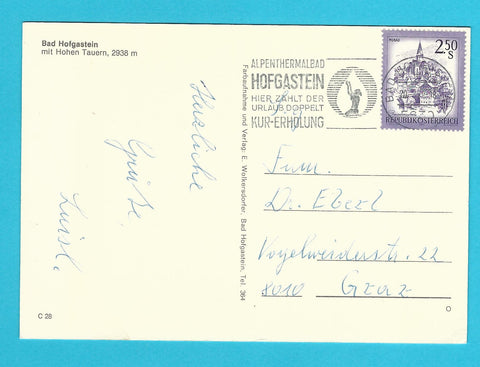 Bad Hofgastein
mit Hohen Tauern, 2938 m
Herzliche
Grüße
Luisl.
C 28
Farbaufnahme und Verlag: E. Wolkersdorfer, Bad Hofgastein, Tel. 364
ALPENTHERMALBAD
HOFGASTEIN
HIER ZÄHLT DER
URLAUB DOPPELT
KUR-ERHOLUNG
MURAU
2.50
S
REPUBLIK ÖSTERREICH
BAD
Fam.
Dr. Eberl
22
8010 Graz
O